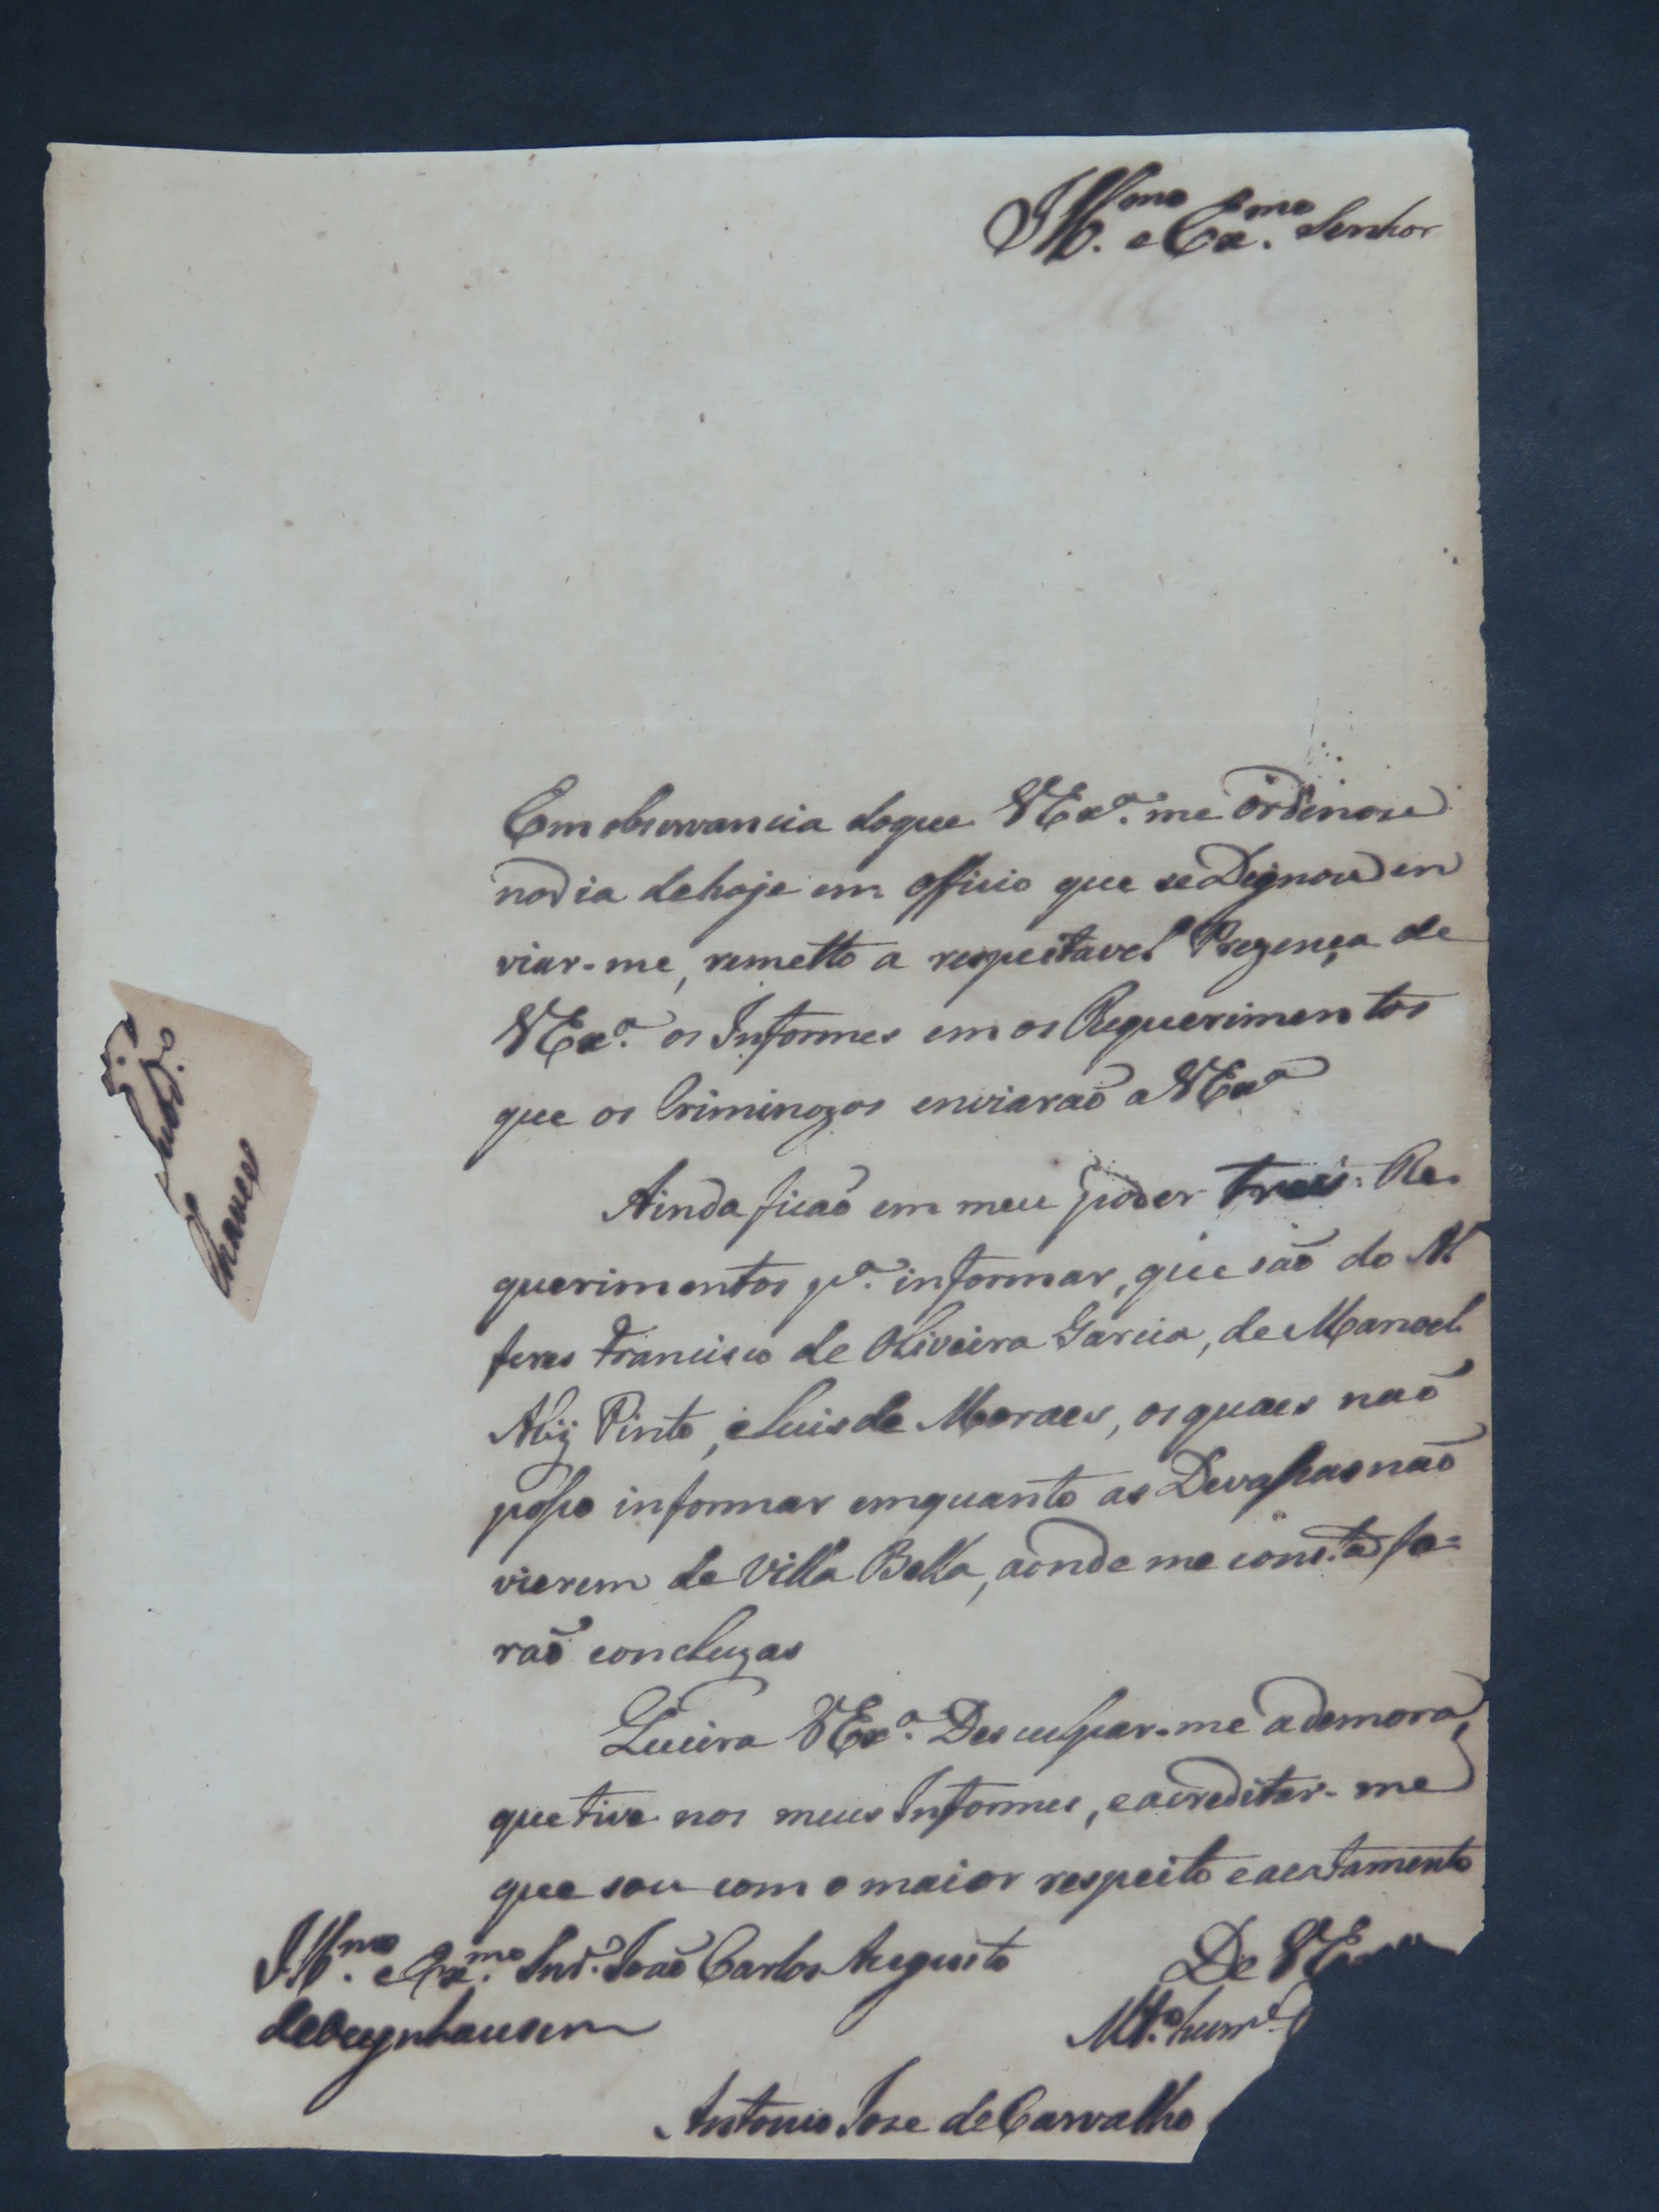 Ill.mo e Ex.mo Senhor
Em observancia doque VEx.a me ordinou
nodia dehoje em officio que se Dignou en
viar-me, remetto a respeitavel Prezença de
VEx.a os Informes em os Requerimentos
que os Criminozos enviaraõ a VEx.a
Ainda ficaõ em meu poder tres Re-
querimentos p.a informar, que saõ do Al
feres Francisco de Oliveira Garcia, de Manoel
Pinto, eLuis de Moraes, osquaes naõ
posso informar emquanto as Devassas naõ
vierem de Villa Bella, aonde me consta fo=
raõ concluzas
Queira VEx.a Desculpar-me ademora,
quetive nos meus Informes, eacreditar-me
que sou com o maior respeito eacatamento
De VE
Ill.mo e Ex.mo Snr. Joaõ Carlos Augusto
deOeynhausen
M.to hum.e
Antonio Jose deCarvalho
Chaves